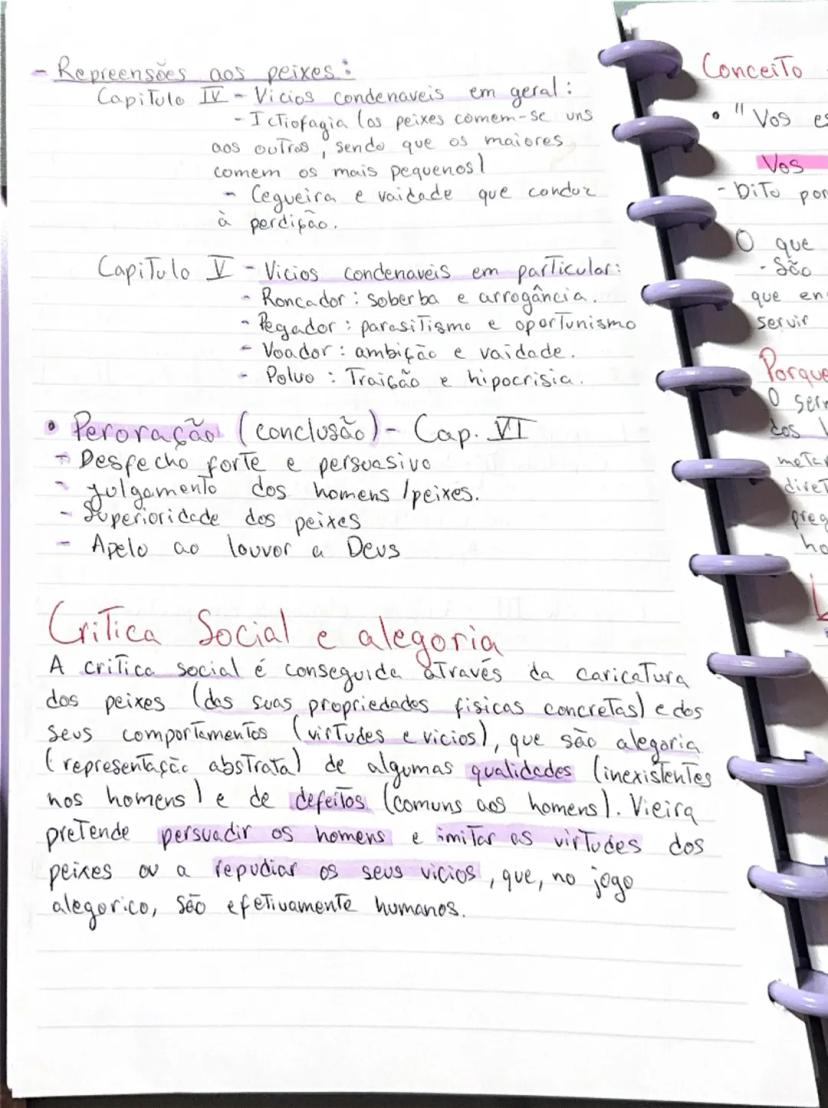 - Repreensões aos peixes:
Capitulo IV - Vicios condenaveis em geral:
- Ictiofagia (os peixes comem-se uns
aos outros, sendo que os maiores
comem os mais pequenos)
- Cegueira e vaidade que conduz
à perdição.
Capitulo V - Vicios condenaveis em particular:
- Roncador: soberba e arrogância.
- Pegador: parasitismo e oportunismo
- Voador: ambição e vaidade.
- Polvo: Traição e hipocrisia.
• Peroração (conclusão) - Cap. VI
- Desfecho forte e persuasivo
- Julgamento dos homens/peixes.
- Superioridade dos peixes
- Apelo ao louvor a Deus
Critica Social e alegoria
A critica social é conseguida através da caricatura
dos peixes (das suas propriedades fisicas concretas) e dos
seus comportamentos (virtudes e vicios), que são alegoria
(representação abstrata) de algumas qualidades (inexistentes
nos homens) e de defeitos (comuns aos homens). Vieira
pretende persuadir os homens e imitar as virtudes dos
peixes ou a repudiar os seus vicios, que, no jogo
alegorico, são efetivamente humanos.
Conceito
• "Vos es
Vos
- Dito por
O que
- São
que en
servir
Porque
O ser
dos
meta
diret
preg
ho